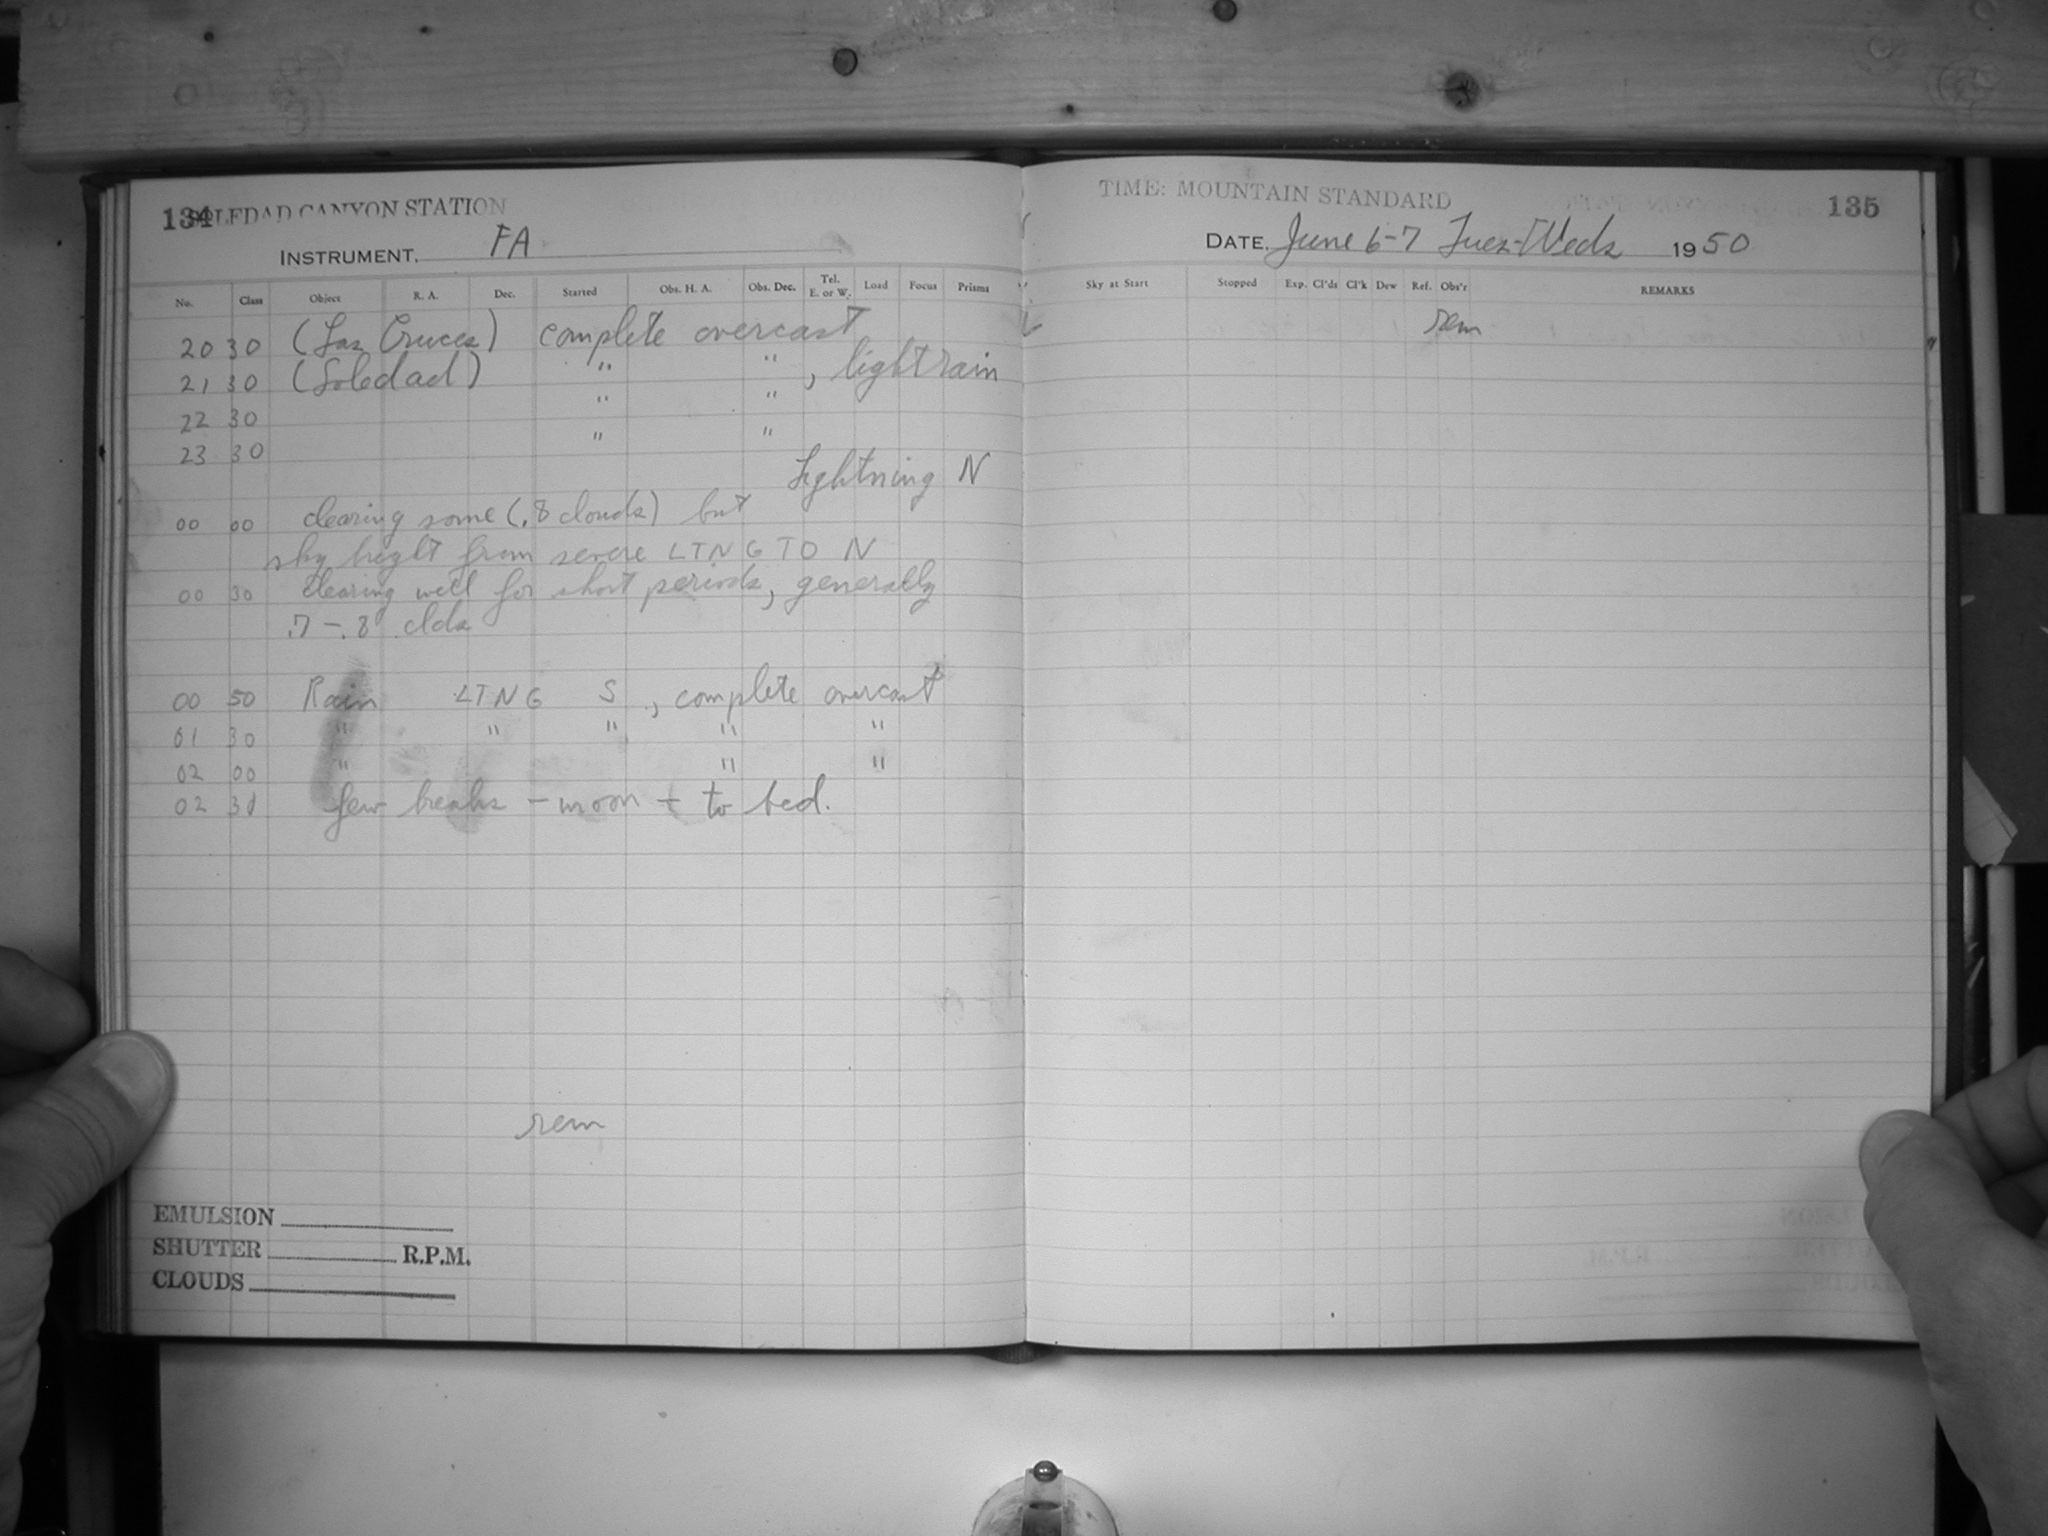 134 SOLEDAD CANYON STATION
INSTRUMENT. FA
No. Class Object R. A. Dec. Started Obs. H. A. Obs. Dec. Tel. E. or W. Load Focus Prisms
20 30 (Las Cruces) complete overcast
21 30 (Soledad) " " , light rain
22 30 " "
23 30 " "
Lightning N
00 00 clearing some (.8 clouds) but
sky bright from severe LTNG TO N
00 30 clearing well for short periods, generally
.7 - .8 clds
00 50 Rain LTNG S , complete overcast
01 30 " " " " "
02 00 " " "
02 30 few breaks - moon - to bed.
rem
EMULSION
SHUTTER R.P.M.
CLOUDS
TIME: MOUNTAIN STANDARD
135
DATE. June 6-7 Tues-Weds 1950
Sky at Start Stopped Exp. Cl'ds Cl'k Dew Ref. Obs'r REMARKS
rem